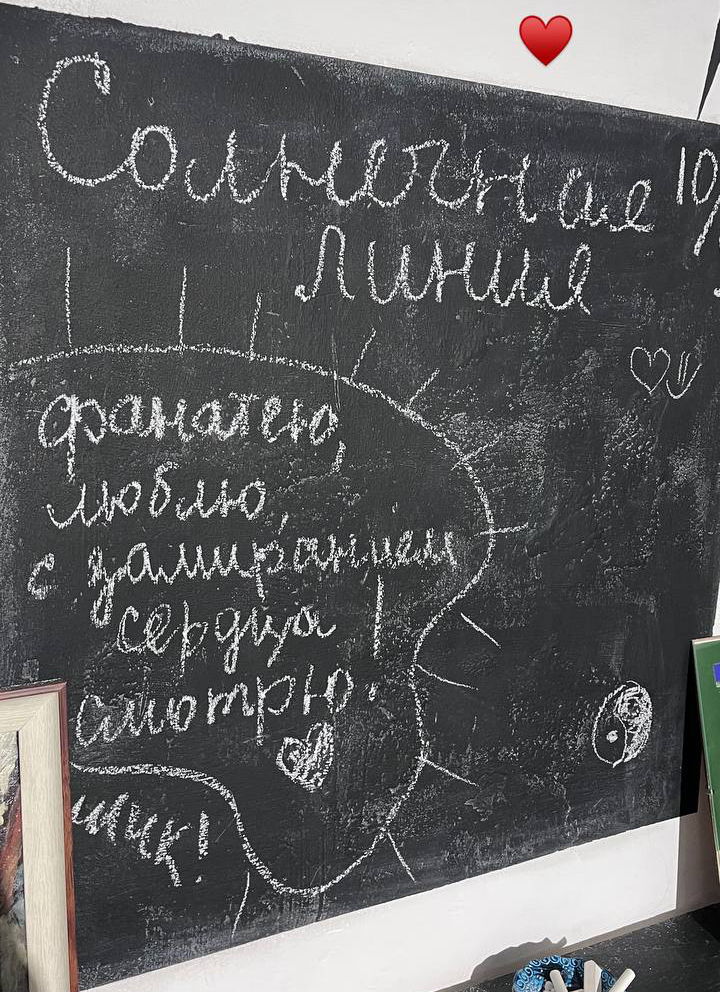 Солнечные 10
линии
фанатею,
люблю,
с замиранием
сердца
смотрю!
шик!